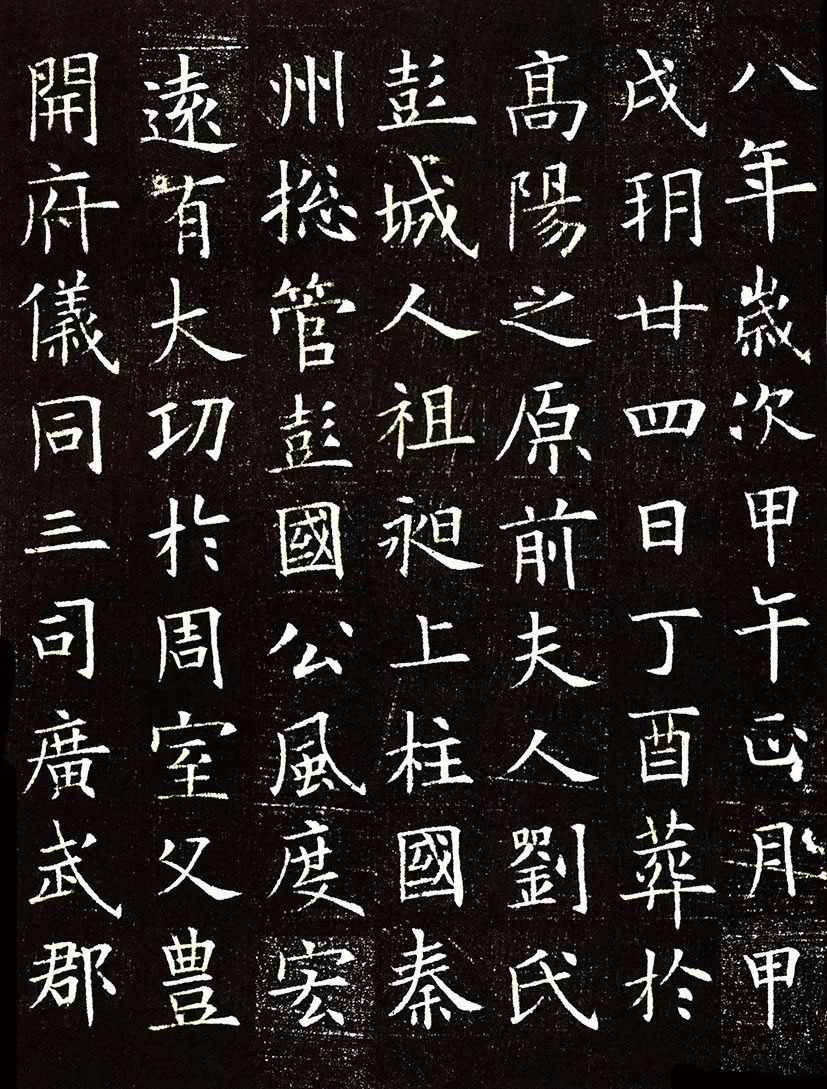 八年歲次甲午正月甲
戌玥廿四日丁酉葬於
髙陽之原前夫人劉氏
彭城人祖昶上柱國秦
州捴管彭國公風度宏
遠有大㓛於周室父豊
開府儀同三司廣武郡